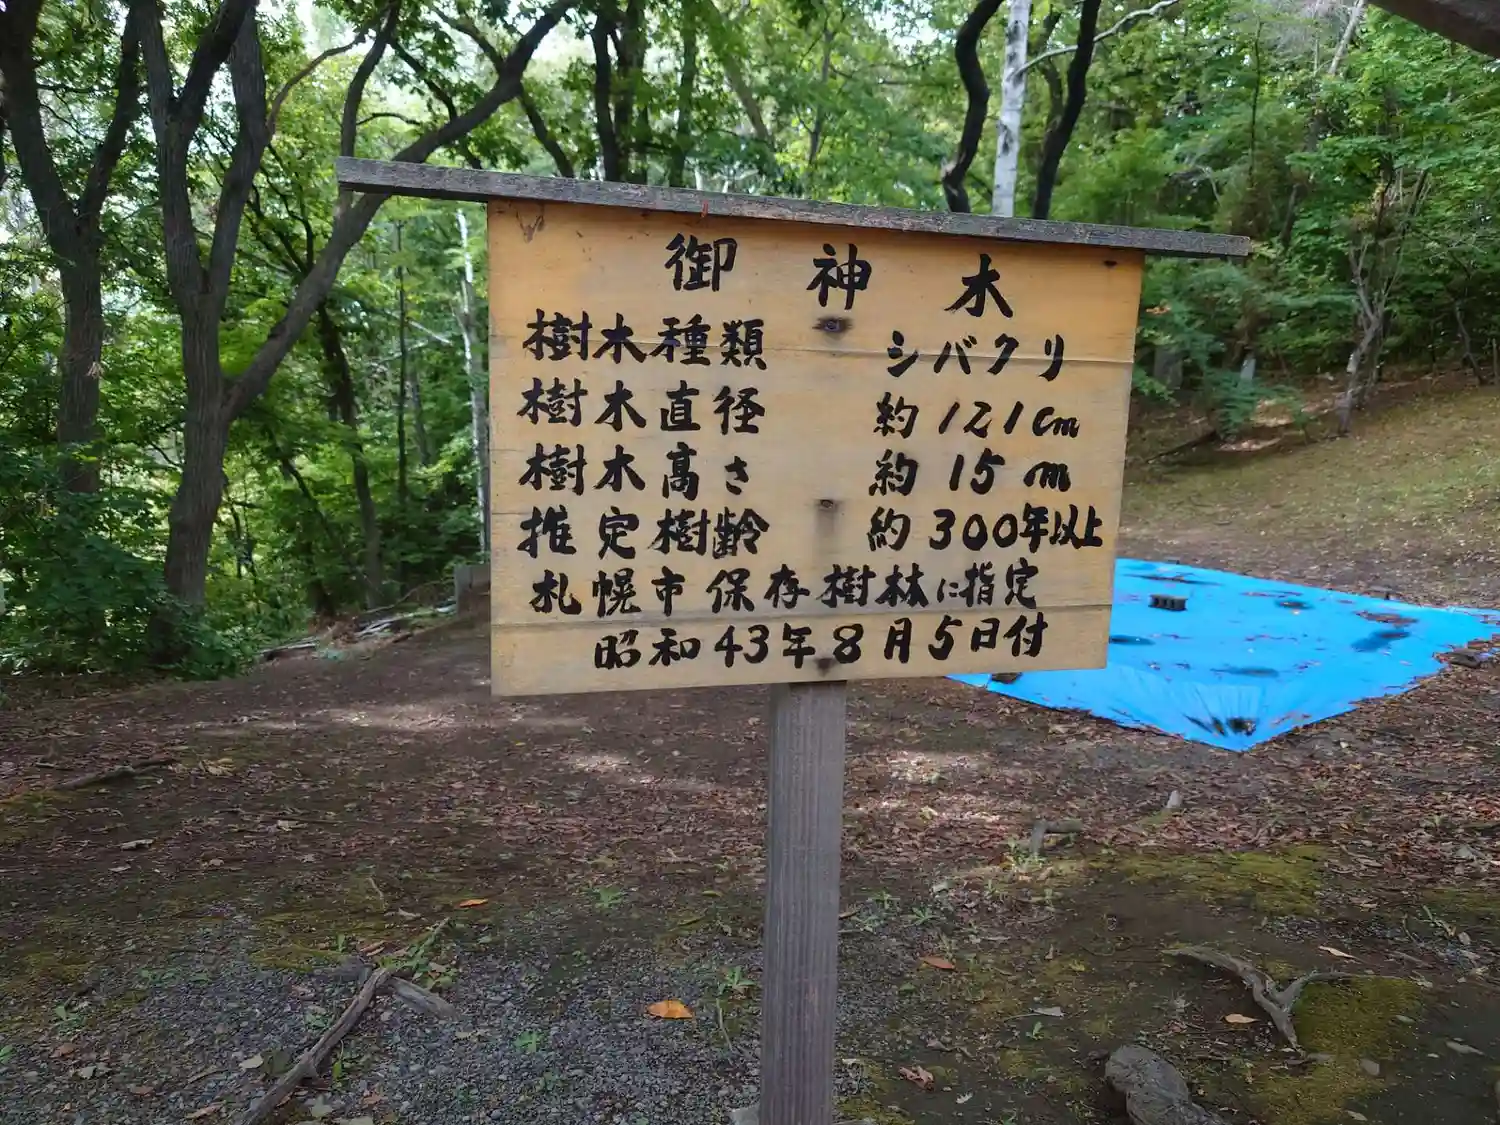 御神木
樹木種類 シバクリ
樹木直径 約121cm
樹木高さ 約15m
推定樹齢 約300年以上
札幌市保存樹林に指定
昭和43年8月5日付